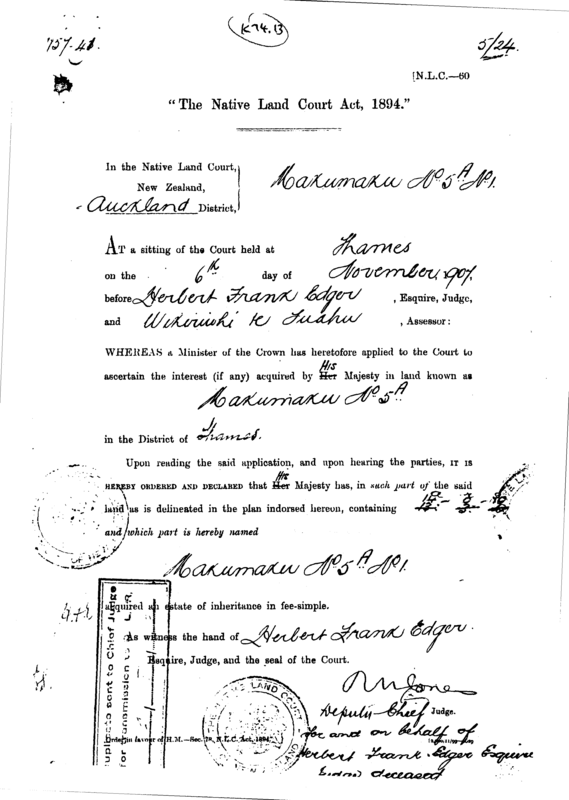 K74.B
757.41
5/24.
[N.L.C.—60
"The Native Land Court Act, 1894."
In the Native Land Court,
New Zealand,
Auckland District,
Makumaku No 5A No 1.
At a sitting of the Court held at Thames
on the 6th day of November, 1907,
before Herbert Frank Edger, Esquire, Judge,
and Wikiriwhi te Tuahu, Assessor:
WHEREAS a Minister of the Crown has heretofore applied to the Court to
ascertain the interest (if any) acquired by Her His Majesty in land known as
Makumaku No 5A
in the District of Thames.
Upon reading the said application, and upon hearing the parties, IT IS
HEREBY ORDERED AND DECLARED that Her His Majesty has, in such part of the said
land as is delineated in the plan indorsed hereon, containing
and which part is hereby named
Makumaku No 5A No 1.
acquired an estate of inheritance in fee-simple.
As witness the hand of Herbert Frank Edger.
Esquire, Judge, and the seal of the Court.
Deputy Chief Judge.
for and on behalf of
Herbert Frank Edger Esquire
deceased
Order in favour of H.M.—Sec.
THE NATIVE LAND COURT
Duplicate sent to Chief Judge
for transmission to